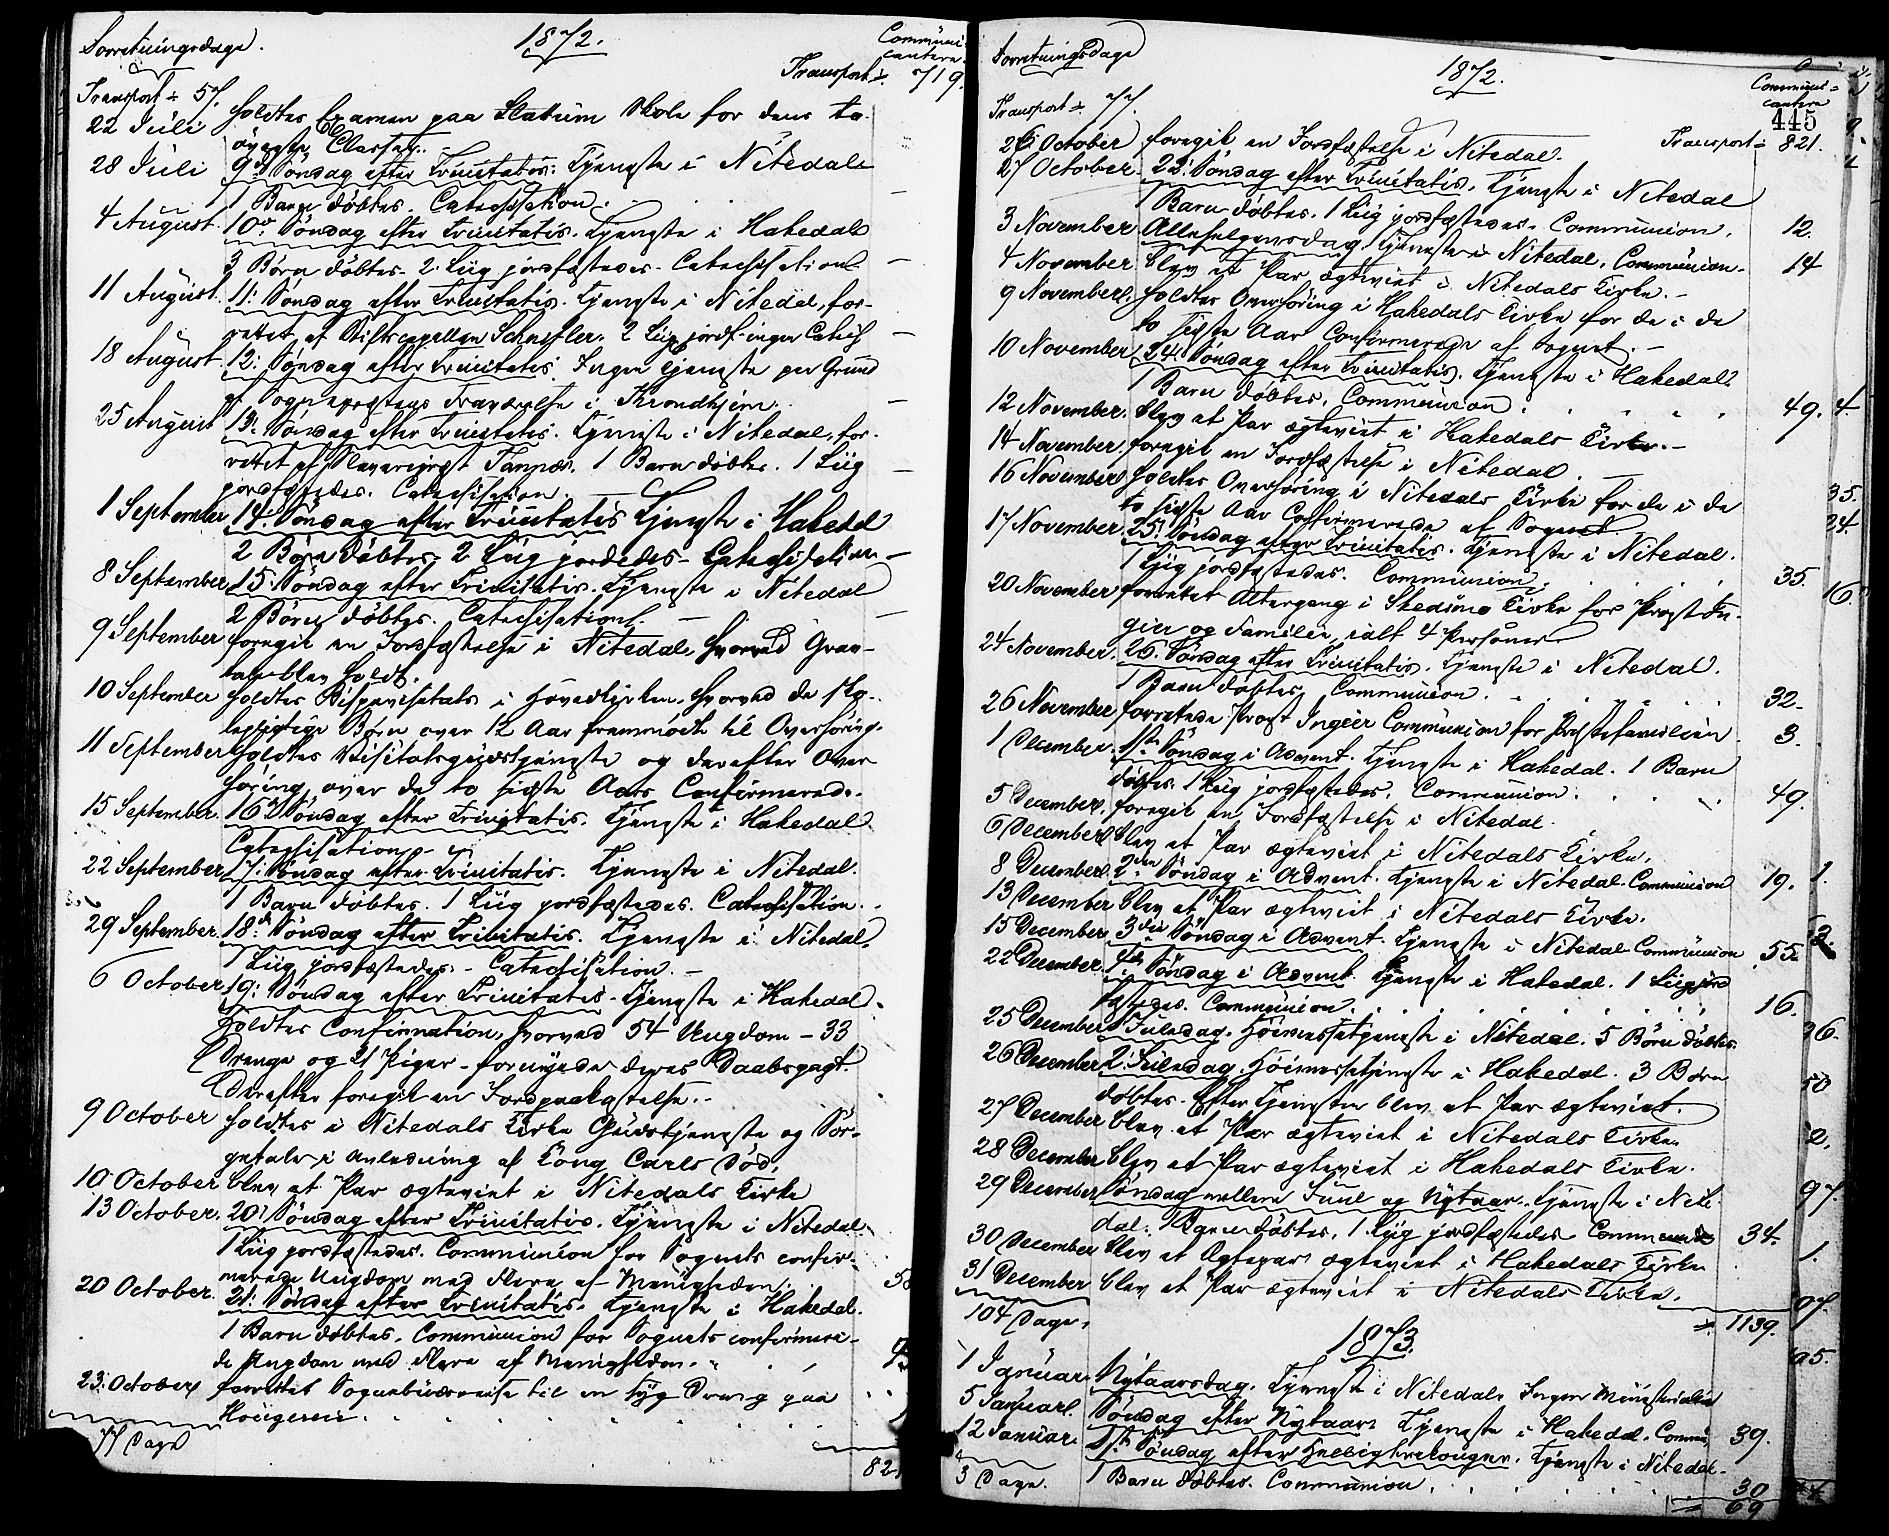 Forretningsdage. 1872. Communi-
cantere
Transport ÷ 57. Transport ÷ 719.
22 Juli holdtes Examen paa Slattum Skole for dens to
øverste Classer.
28 Juli 9de Søndag efter Trinitatis. Tjeneste i Nitedal
1 Barn døbtes. Catechisation. –
4 August 10de Søndag efter Trinitatis. Tjeneste i Hakedal
3 Børn døbtes. 2 Liig jordfæstedes. Catechisation –
11 August. 11: Søndag efter Trinitatis. Tjeneste i Nitedal, for-
rettet af Stiftscapellan Schnitler. 2 Liig jordf. ingen Catech –
18 August. 12: Søndag efter Trinitatis. Ingen Tjeneste paa Grund
af Sognepræstens Fraværelse i Throndhjem. –
25 August 13: Søndag efter Trinitatis. Tjeneste i Nitedal, for-
rettet af Slavepræst. 1 Barn døbtes. 1 Liig –
jordfæstedes. Catechisation.
1 September 14. Søndag efter Trinitatis Tjeneste i Hakedal
2 Børn døbtes, 2 Liig jordedes – Catechisation –
8 September 15. Søndag efter Trinitatis. Tjeneste i Nitedal
2 Børn døbtes. Catechisation. –
9 September foregik en Jordfæstelse i Nitedal, hvorved Grav-
tale blev holdt.
10 September holdtes Bispevisitats i Hovedkirken, hvorved de sko-
lepligtige Børn over 12 Aar fremmødte til Overhøring.
11 September holdtes Visitatsgudstjeneste og derefter Over-
høring over de to sidste Aars Confirmerede.
15 September. 16de Søndag efter Trinitatis. Tjeneste i Hakedal
Catechisation.
22 September 17: Søndag efter Trinitatis. Tjeneste i Nitedal.
1 Barn døbtes. 1 Liig jordfæstedes. Catechisation.
29 September. 18de Søndag efter Trinitatis. Tjeneste i Nitedal.
1 Liig jordfæstedes. – Catechisation. –
6 October 19: Søndag efter Trinitatis. Tjeneste i Hakedal.
Holdtes Confirmation, hvorved 54 Ungdom – 33
Drenge og 21 Piger – fornyede deres Daabspagt.
Derefter foregik en Jordpaakastelse.
9 October holdtes i Nitedals Kirke Gudstjeneste og Sør-
getale i Anledning af Kong Carls Død.
10 October blev et Par ægteviet i Nitedals Kirke
13 October. 20: Søndag efter Trinitatis. Tjeneste i Nitedal.
1 Liig jordfæstedes. Communion for Sognets confir-
merede Ungdom med Flere af Menigheden.
20 October. 21: Søndag efter Trinitatis. Tjeneste i Hakedal.
1 Barn døbtes. Communion for Sognets confirmere-
de Ungdom med Flere af Menigheden.
23: October forrettet Sognebudsreise til en syg Dreng paa
Hougereie.
77 Dage
82
Forretningsdage 1872. Communi-
cantere
445
Transport ÷ 77. Transport ÷ 821.
26 October foregik en Jordfæstelse i Nitedal.
27 October. 22: Søndag efter Trinitatis. Tjeneste i Nitedal
1 Barn døbtes. 1 Liig jordfæstedes. Communion. 12.
3 November Allehelgensdag Tjeneste i Nitedal. Communion. 14
4 November blev et Par ægteviet i Nitedals Kirke. –
9 November. holdtes Overhøring i Hakedals Kirke for de i de
to sidste Aar Confirmerede af Sognet. –
10 November 24: Søndag efter Trinitatis. Tjeneste i Hakedal.
1 Barn døbtes. Communion. 49.
12 November. blev et Par ægteviet i Hakedals Kirke. –
14 November. foregik en Jordfæstelse i Nitedal. –
16 November holdtes Overhøring i Nitedals Kirke for de i de
to sidste Aar Confirmerede af Sognet
17 November 25: Søndag efter Trinitatis. Tjeneste i Nitedal.
1 Liig jordfæstedes. Communion. 35.
20 November forrettet Altergang i Skedsmo Kirke for Præst In-
gier og Familie, ialt 4 Personer
24 November. 26: Søndag efter Trinitatis. Tjeneste i Nitedal.
1 Barn døbtes. Communion. 32.
26 November forrettede Præst Ingier Communion for Præstefamilien 3.
1 December. 1ste Søndag i Advent. Tjeneste i Hakedal. 1 Barn
døbtes. 1 Liig jordfæstedes. Communion. 49.
5 December. foregik en Jordfæstelse i Nitedal.
6 December blev et Par ægteviet i Nitedals Kirke.
8 December 2den Søndag i Advent. Tjeneste i Nitedal. Communion 19.
13 December blev et Par ægteviet i Nitedals Kirke.
15 December 3die Søndag i Advent. Tjeneste i Nitedal. Communion 55.
22 December. 4de Søndag i Advent. Tjeneste i Hakedal. 1 Liig jord-
fæstedes. Communion. 16.
25 December Juledag. Høimessetjeneste i Nitedal. 5 Børn døbtes.
26 December 2: Juledag. Høimessetjeneste i Hakedal. 3 Børn
døbtes. Efter Tjenesten blev et Par ægteviet.
27 December blev et Par ægteviet i Nitedals Kirke.
28 December blev et Par ægteviet i Hakedals Kirke.
29 December Søndag mellem Juul og Nytaar. Tjeneste i Nite-
dal. 1 Barn døbtes, 1 Liig jordfæstedes Communion 34.
30 December blev et Ægtepar ægteviet i Hakedals Kirke
31 December blev et Par ægteviet i Nitedals Kirke.
104 Dage. 1139.
1873.
1 Januar. Nytaarsdag. Tjeneste i Nitedal. Ingen Ministerialia
5 Januar. Søndag efter Nytaar. Tjeneste i Hakedal. Commun. 39.
12 Januar. 1ste Søndag efter Helligtrekonger. Tjeneste i Nitedal.
1 Barn døbtes. Communion. 30
3 Dage. 69